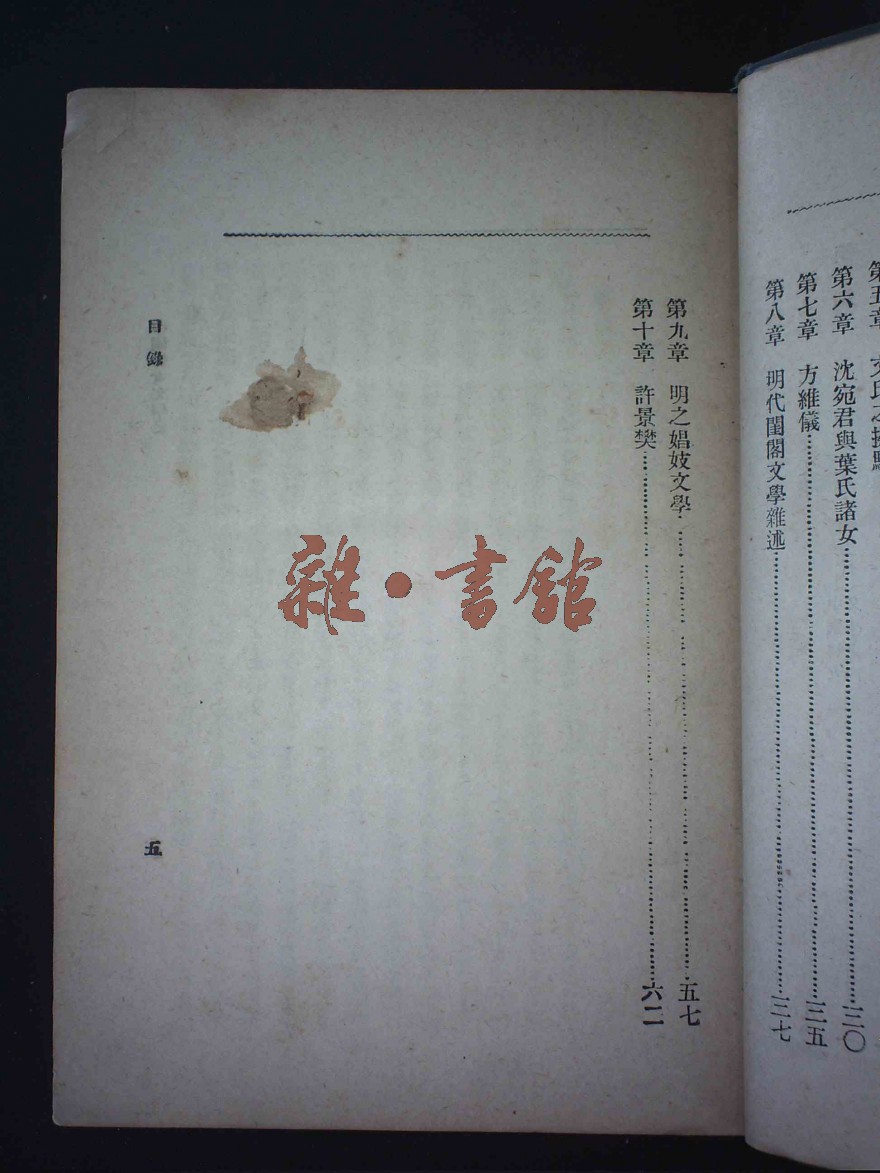 第五章
第六章　沈宛君與葉氏諸女……三〇
第七章　方維儀……三五
第八章　明代閨閣文學雜述……三七
第九章　明之娼妓文學……五七
第十章　許景樊……六二
目錄
五
雜·書館